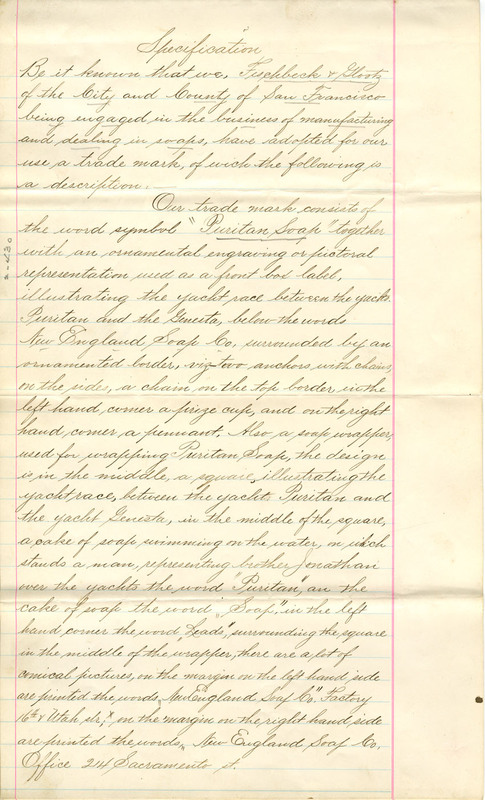 Specification
Be it known that we, Fischbeck & Glootz
of the City and County of San Francisco
being engaged in the business of manufacturing
and dealing in soaps, have adopted for our
use a trade mark, of wich the following is
a description.
Our trade mark consists of
the word symbol "Puritan Soap" together
with an ornamental engraving or pictoral
representation used as a front box label,
illustrating the yacht race between the yachts
Puritan and the Genesta, below the words
New England Soap Co, surrounded by an
ornamented border, viz two anchors with chains,
on the side, a chain, on the top border in the
left hand, corner a prize cup, and on the right
hand, corner, a pennant. Also a soap wrapper,
used for wrapping Puritan Soap, the design
is in the middle, a square, illustrating the
yacht race, between the yacht Puritan and
the yacht Genesta, in the middle of the square,
a cake of soap swimming on the water, on wich
stands a man, representing brother Jonathan
over the yachts the word "Puritan", on the
cake of soap the word "Soap," in the left
hand corner the word "Leads", surrounding the square
in the middle of the wrapper, there are a lot of
comical pictures, on the margin on the left hand side
are printed the words "New England Soap Co." Factory
16th & Utah, str," on the margin on the right hand side
are printed the words, New England, Soap Co,
Office 214 Sacramento st.